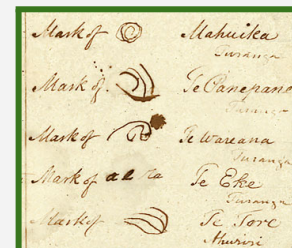 Mark of Mahuika
Turanga
Mark of Te Panepane
Turanga
Mark of Te Wareana
Turanga
Mark of Te Eke
Turanga
Mark of Te Tore
Ahuriri